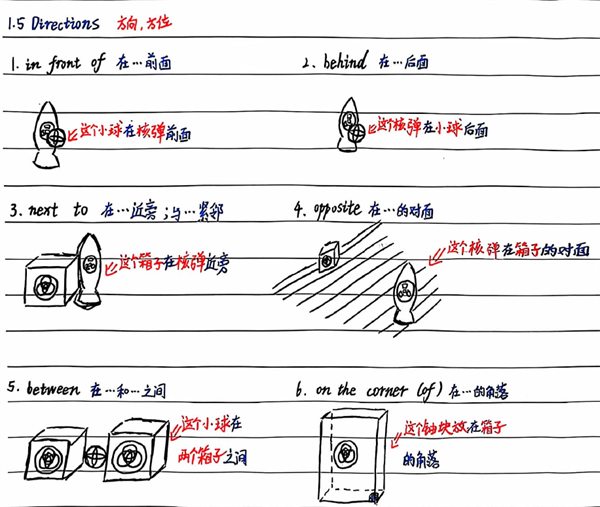 1.5 Directions 方向,方位
1. in front of 在…前面
2. behind 在…后面
这个小球在核弹前面
这个核弹在小球后面
3. next to 在…近旁;与…紧邻
4. opposite 在…的对面
这个箱子在核弹近旁
这个核弹在箱子的对面
5. between 在…和…之间
6. on the corner (of) 在…的角落
这个小球在
两个箱子之间
这个铀块放在箱子
的角落